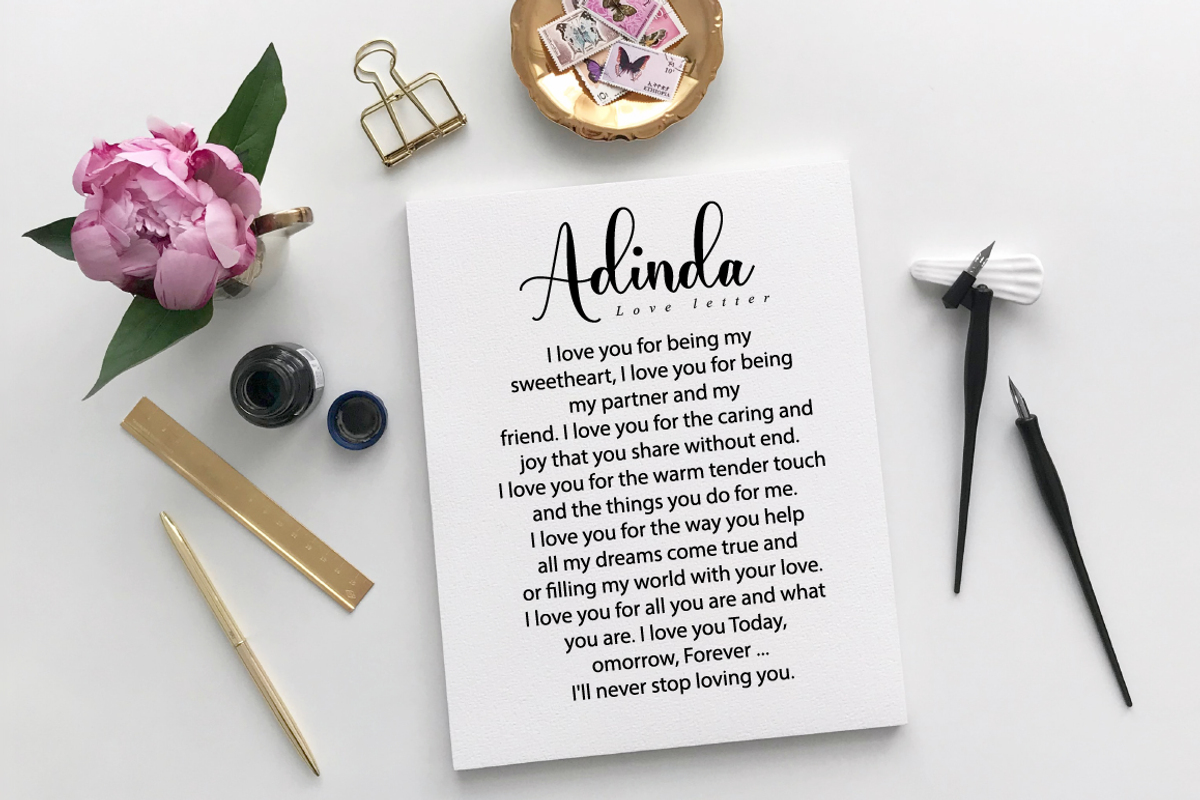 Adinda
Love letter
I love you for being my
sweetheart, I love you for being
my partner and my
friend. I love you for the caring and
joy that you share without end.
I love you for the warm tender touch
and the things you do for me.
I love you for the way you help
all my dreams come true and
or filling my world with your love.
I love you for all you are and what
you are. I love you Today,
omorrow, Forever ...
I'll never stop loving you.